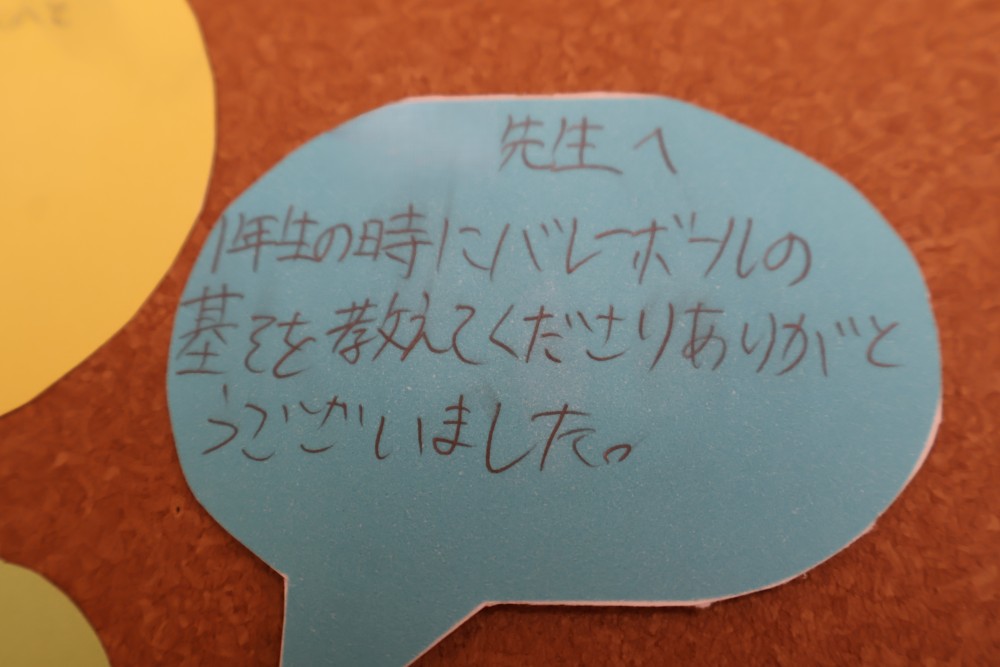 先生へ
1年生の時にバレーボールの
基そを教えてくださりありがと
うございました。